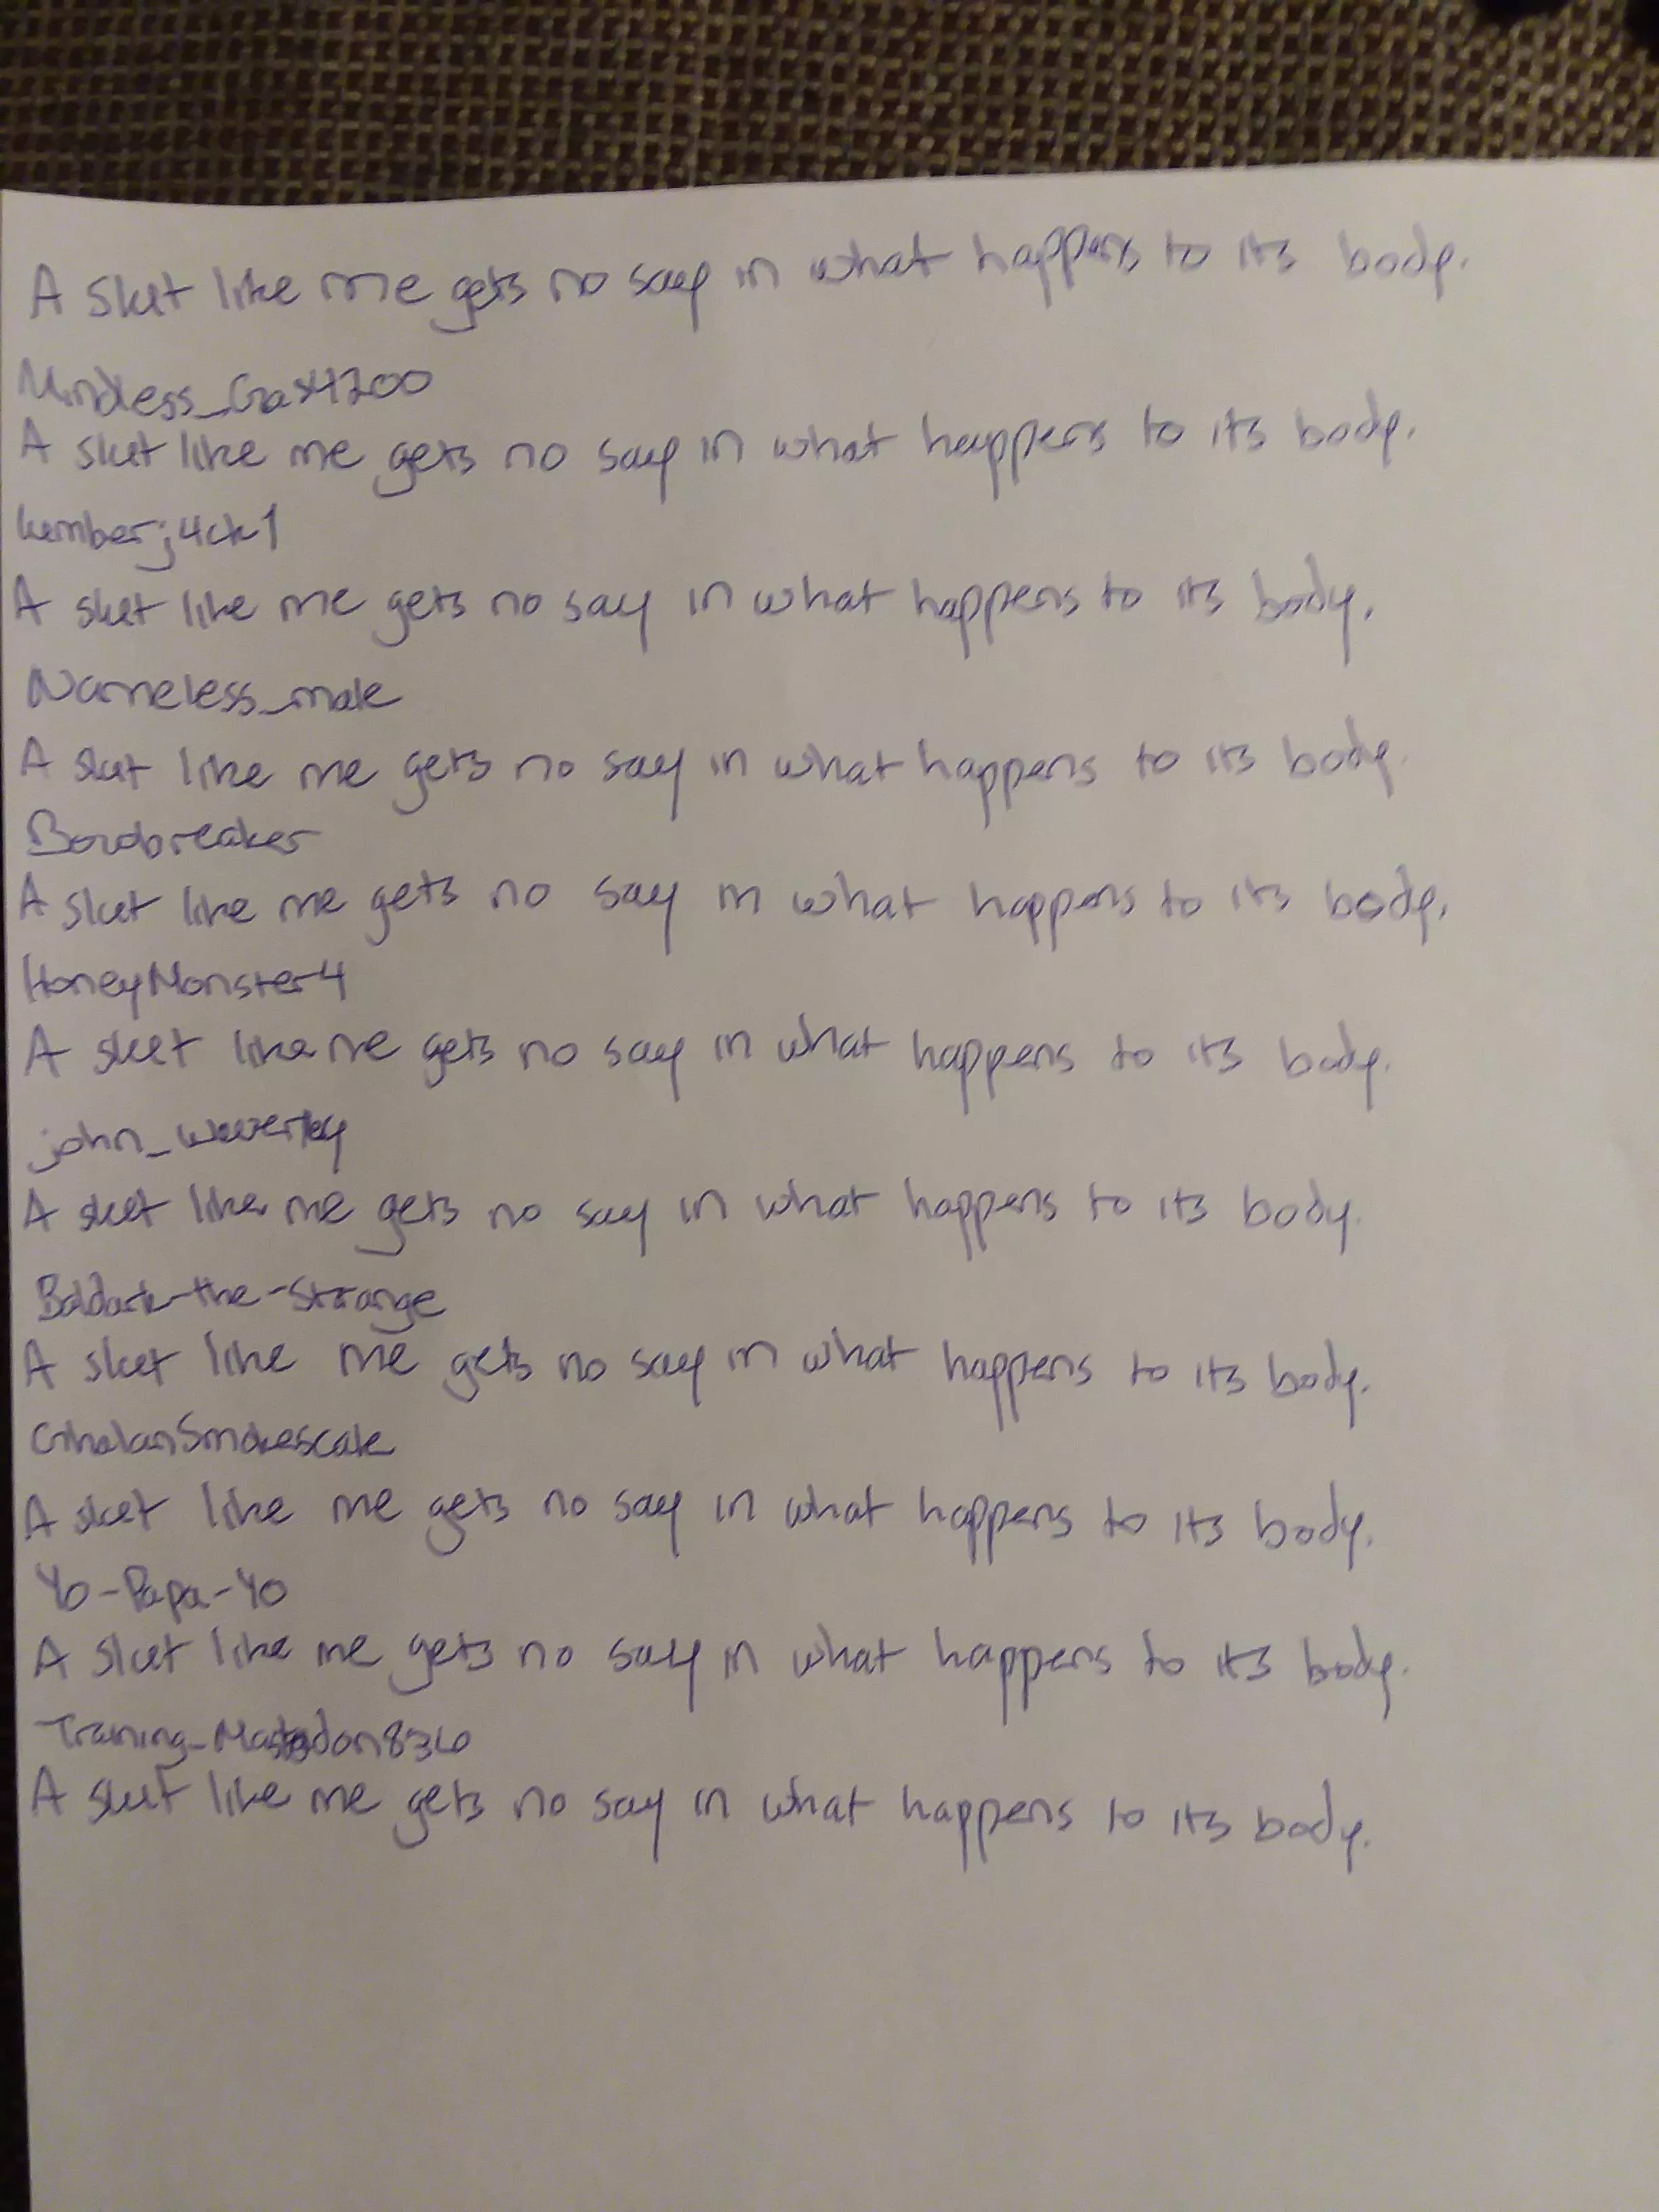 A slut like me gets no say in what happens to its body.
Mindless_Goat4200
A slut like me gets no say in what happens to its body.
lumberj4ck1
A slut like me gets no say in what happens to its body.
Nameless_male
A slut like me gets no say in what happens to its body.
A slut like me gets no say in what happens to its body.
HoneyMonster4
A slut like me gets no say in what happens to its body.
john_waverley
A slut like me gets no say in what happens to its body.
Baldark-the-Strange
A slut like me gets no say in what happens to its body.
A slut like me gets no say in what happens to its body.
Yo-Papa-Yo
A slut like me gets no say in what happens to its body.
Training_Mastodon836
A slut like me gets no say in what happens to its body.